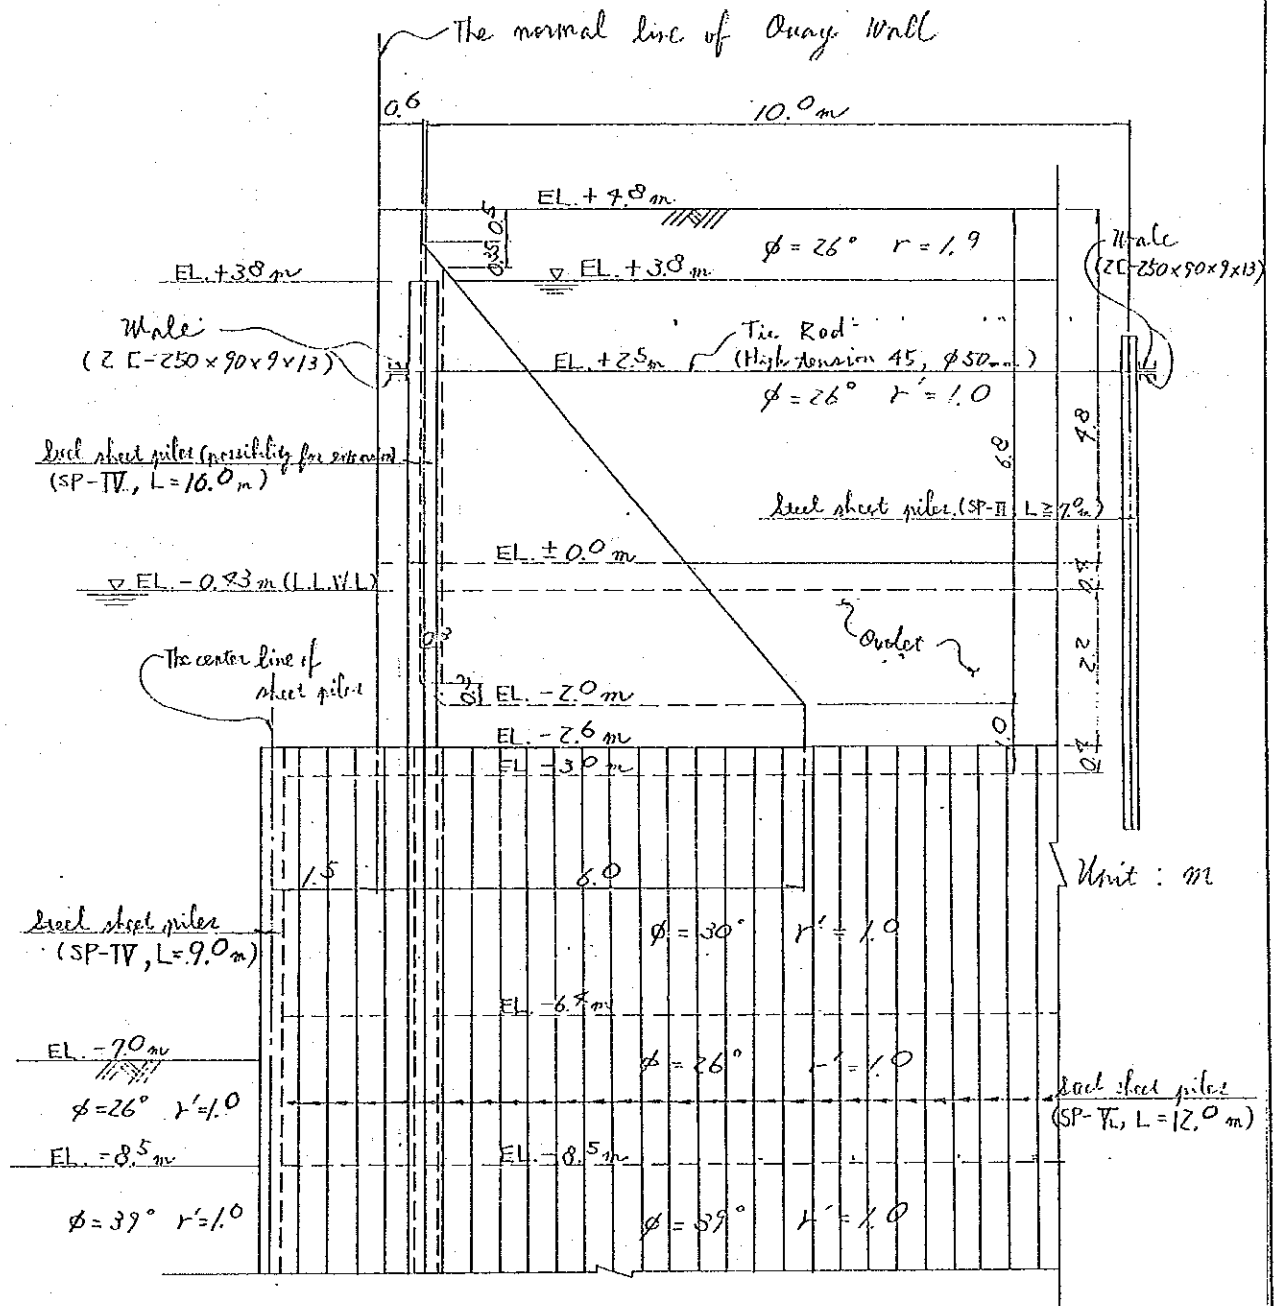 The normal line of Quay Wall
0.6
10.0 m
EL. + 4.8 m
0.5
0.35
φ = 26° r = 1.9
Wale
(2[-250×90×9×13)
EL. +3.8 m
EL. +3.8 m
Wale
(2[-250×90×9×13)
Tie Rod
(High tension 45, φ50mm)
EL. +2.5 m
φ = 26° r' = 1.0
6.8
4.8
Steel sheet piles (possibility for
(SP-IV, L=16.0 m)
Steel sheet piles (SP-II L≧7.0m)
EL. ± 0.0 m
EL. -0.43 m (L.L.W.L)
0.4
0.3
Outlet
2.2
The center line of
sheet piles
EL. -2.0 m
EL. -2.6 m
1.0
EL -3.0 m
0.4
1.5
6.0
Unit : m
Steel sheet piles
(SP-IV, L=9.0 m)
φ = 30° r' = 1.0
EL. -6.4 m
EL. -7.0 m
φ = 26° r' = 1.0
φ=26° r'=1.0
Steel sheet piles
L=12.0 m)
EL. -8.5 m
EL. -8.5 m
φ=39° r'=1.0
φ = 39° r' = 1.0